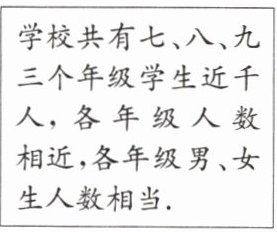 学校共有七、八、九
三个年级学生近千
人，各年级人数
相近，各年级男、女
生人数相当.